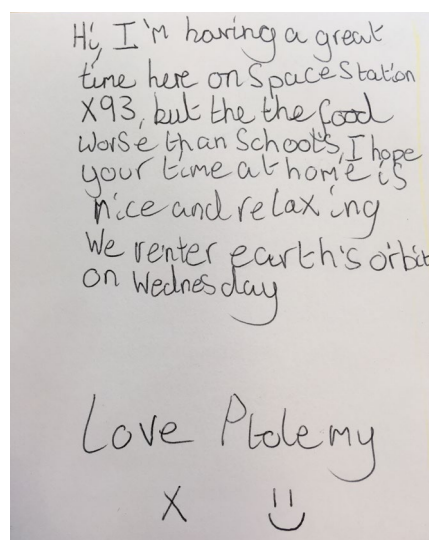 Hi, I'm having a great
time here on Space Station
X93, but the the food
worse than School's, I hope
your time at home is
nice and relaxing
We renter earth's orbit
on Wednesday
Love Ptolemy
X